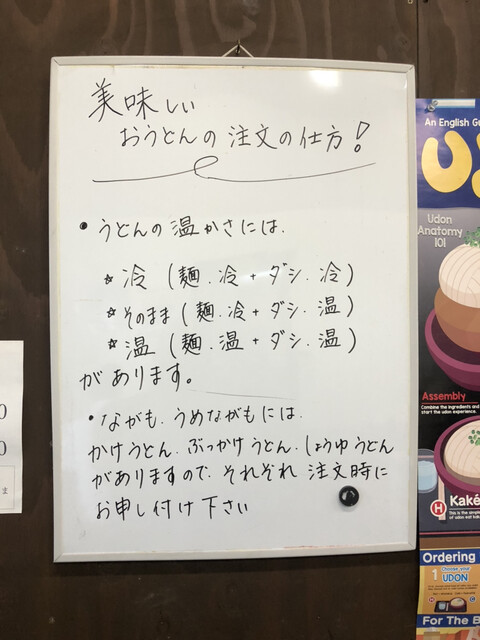 美味しい
おうどんの注文の仕方!
• うどんの温かさには.
☆ 冷 (麺.冷 + ダシ.冷)
☆ そのまま (麺.冷 + ダシ.温)
☆ 温 (麺.温 + ダシ.温)
があります。
• ながも.うめながもには.
かけうどん.ぶっかけうどん.しょうゆうどん
がありますので.それぞれ注文時に
お申し付け下さい
An English Gu
Udon
Anatomy
101
Assembly
Combine the ingredients and
start the udon experience.
H Kaké
This is the simple
of udon eat
Ordering
1 Choose your
UDON
For The B